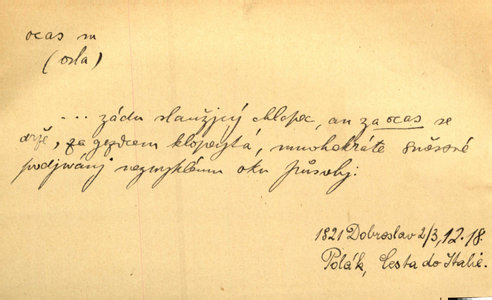 ocas m
(osla)
... zádu slaužjcý chlapec, an za ocas se
drže, za gezdcem klopeytá, mnohokráte směssné
podjwánj nezwyklému oku působj.
1821 Dobroslav 2/3, 12.18.
Polák, Cesta do Italie.